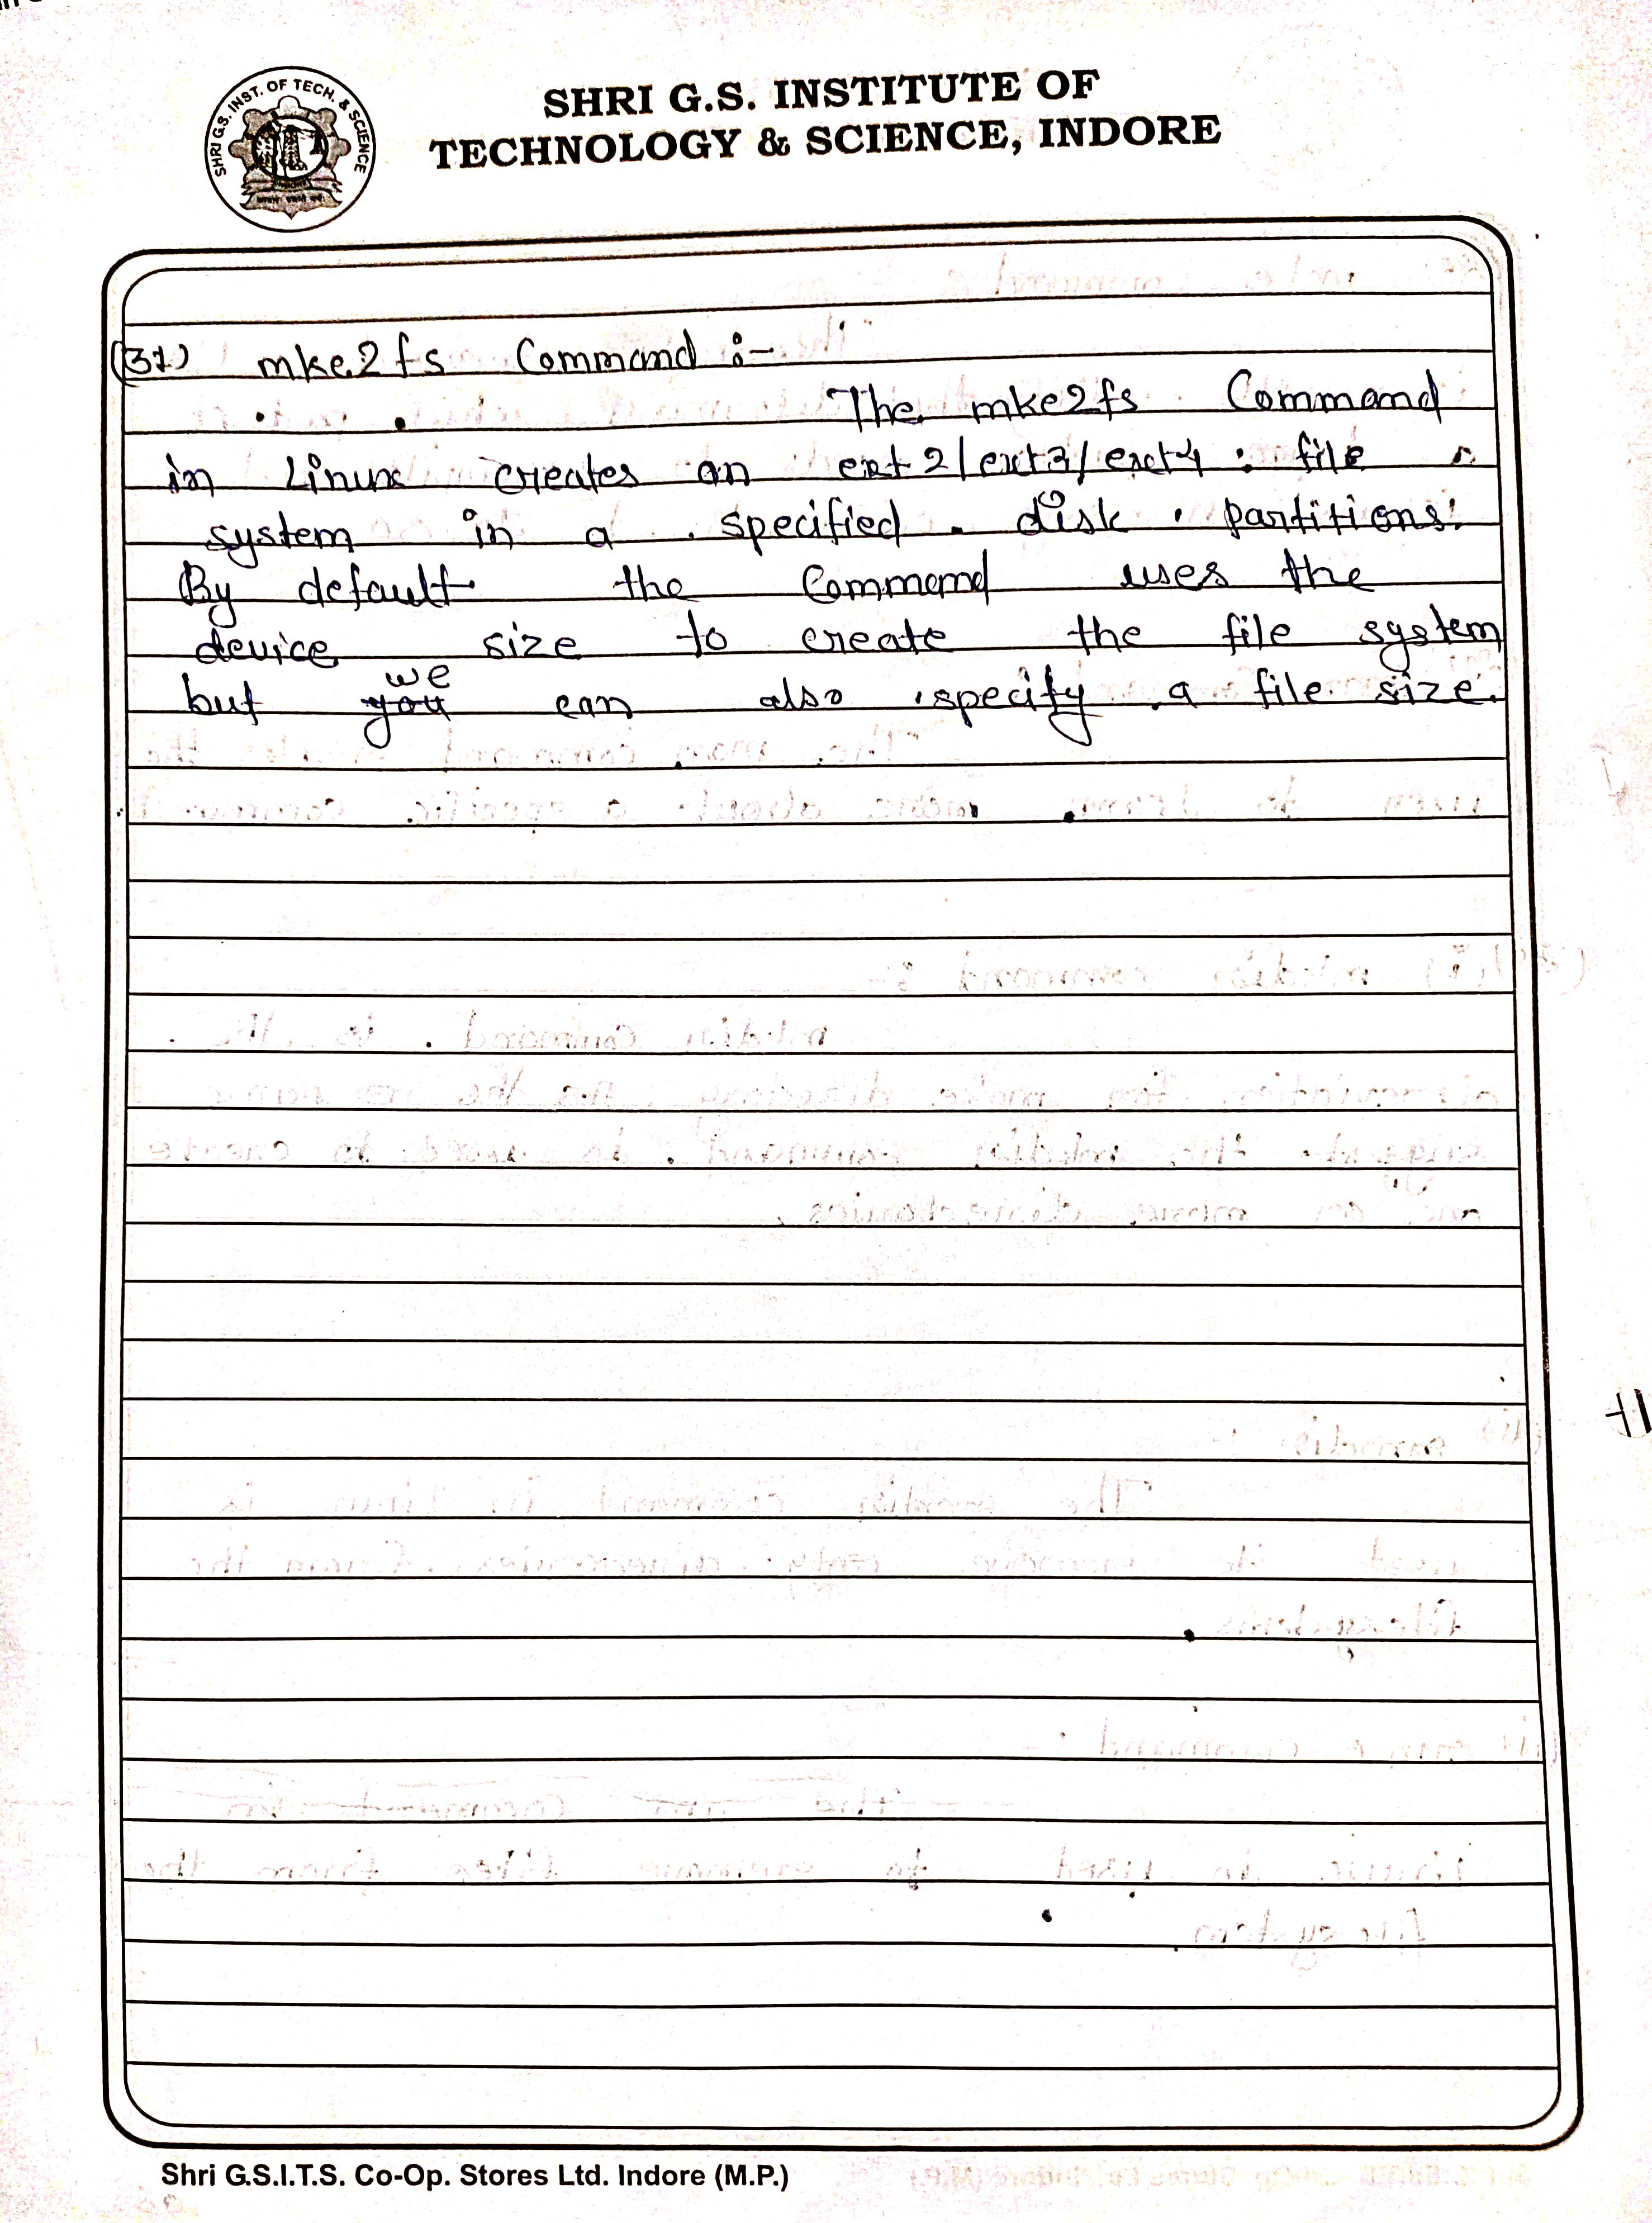 SHRI G.S. INST. OF TECH. & SCIENCE
SHRI G.S. INSTITUTE OF
TECHNOLOGY & SCIENCE, INDORE
(37) mke2fs Command :-
The mke2fs Command
in Linux creates an ext2/ext3/ext4 file
system in a specified disk partitions.
By default the Command uses the
device size to create the file system
we
but you can also specify a file size.
Shri G.S.I.T.S. Co-Op. Stores Ltd. Indore (M.P.)